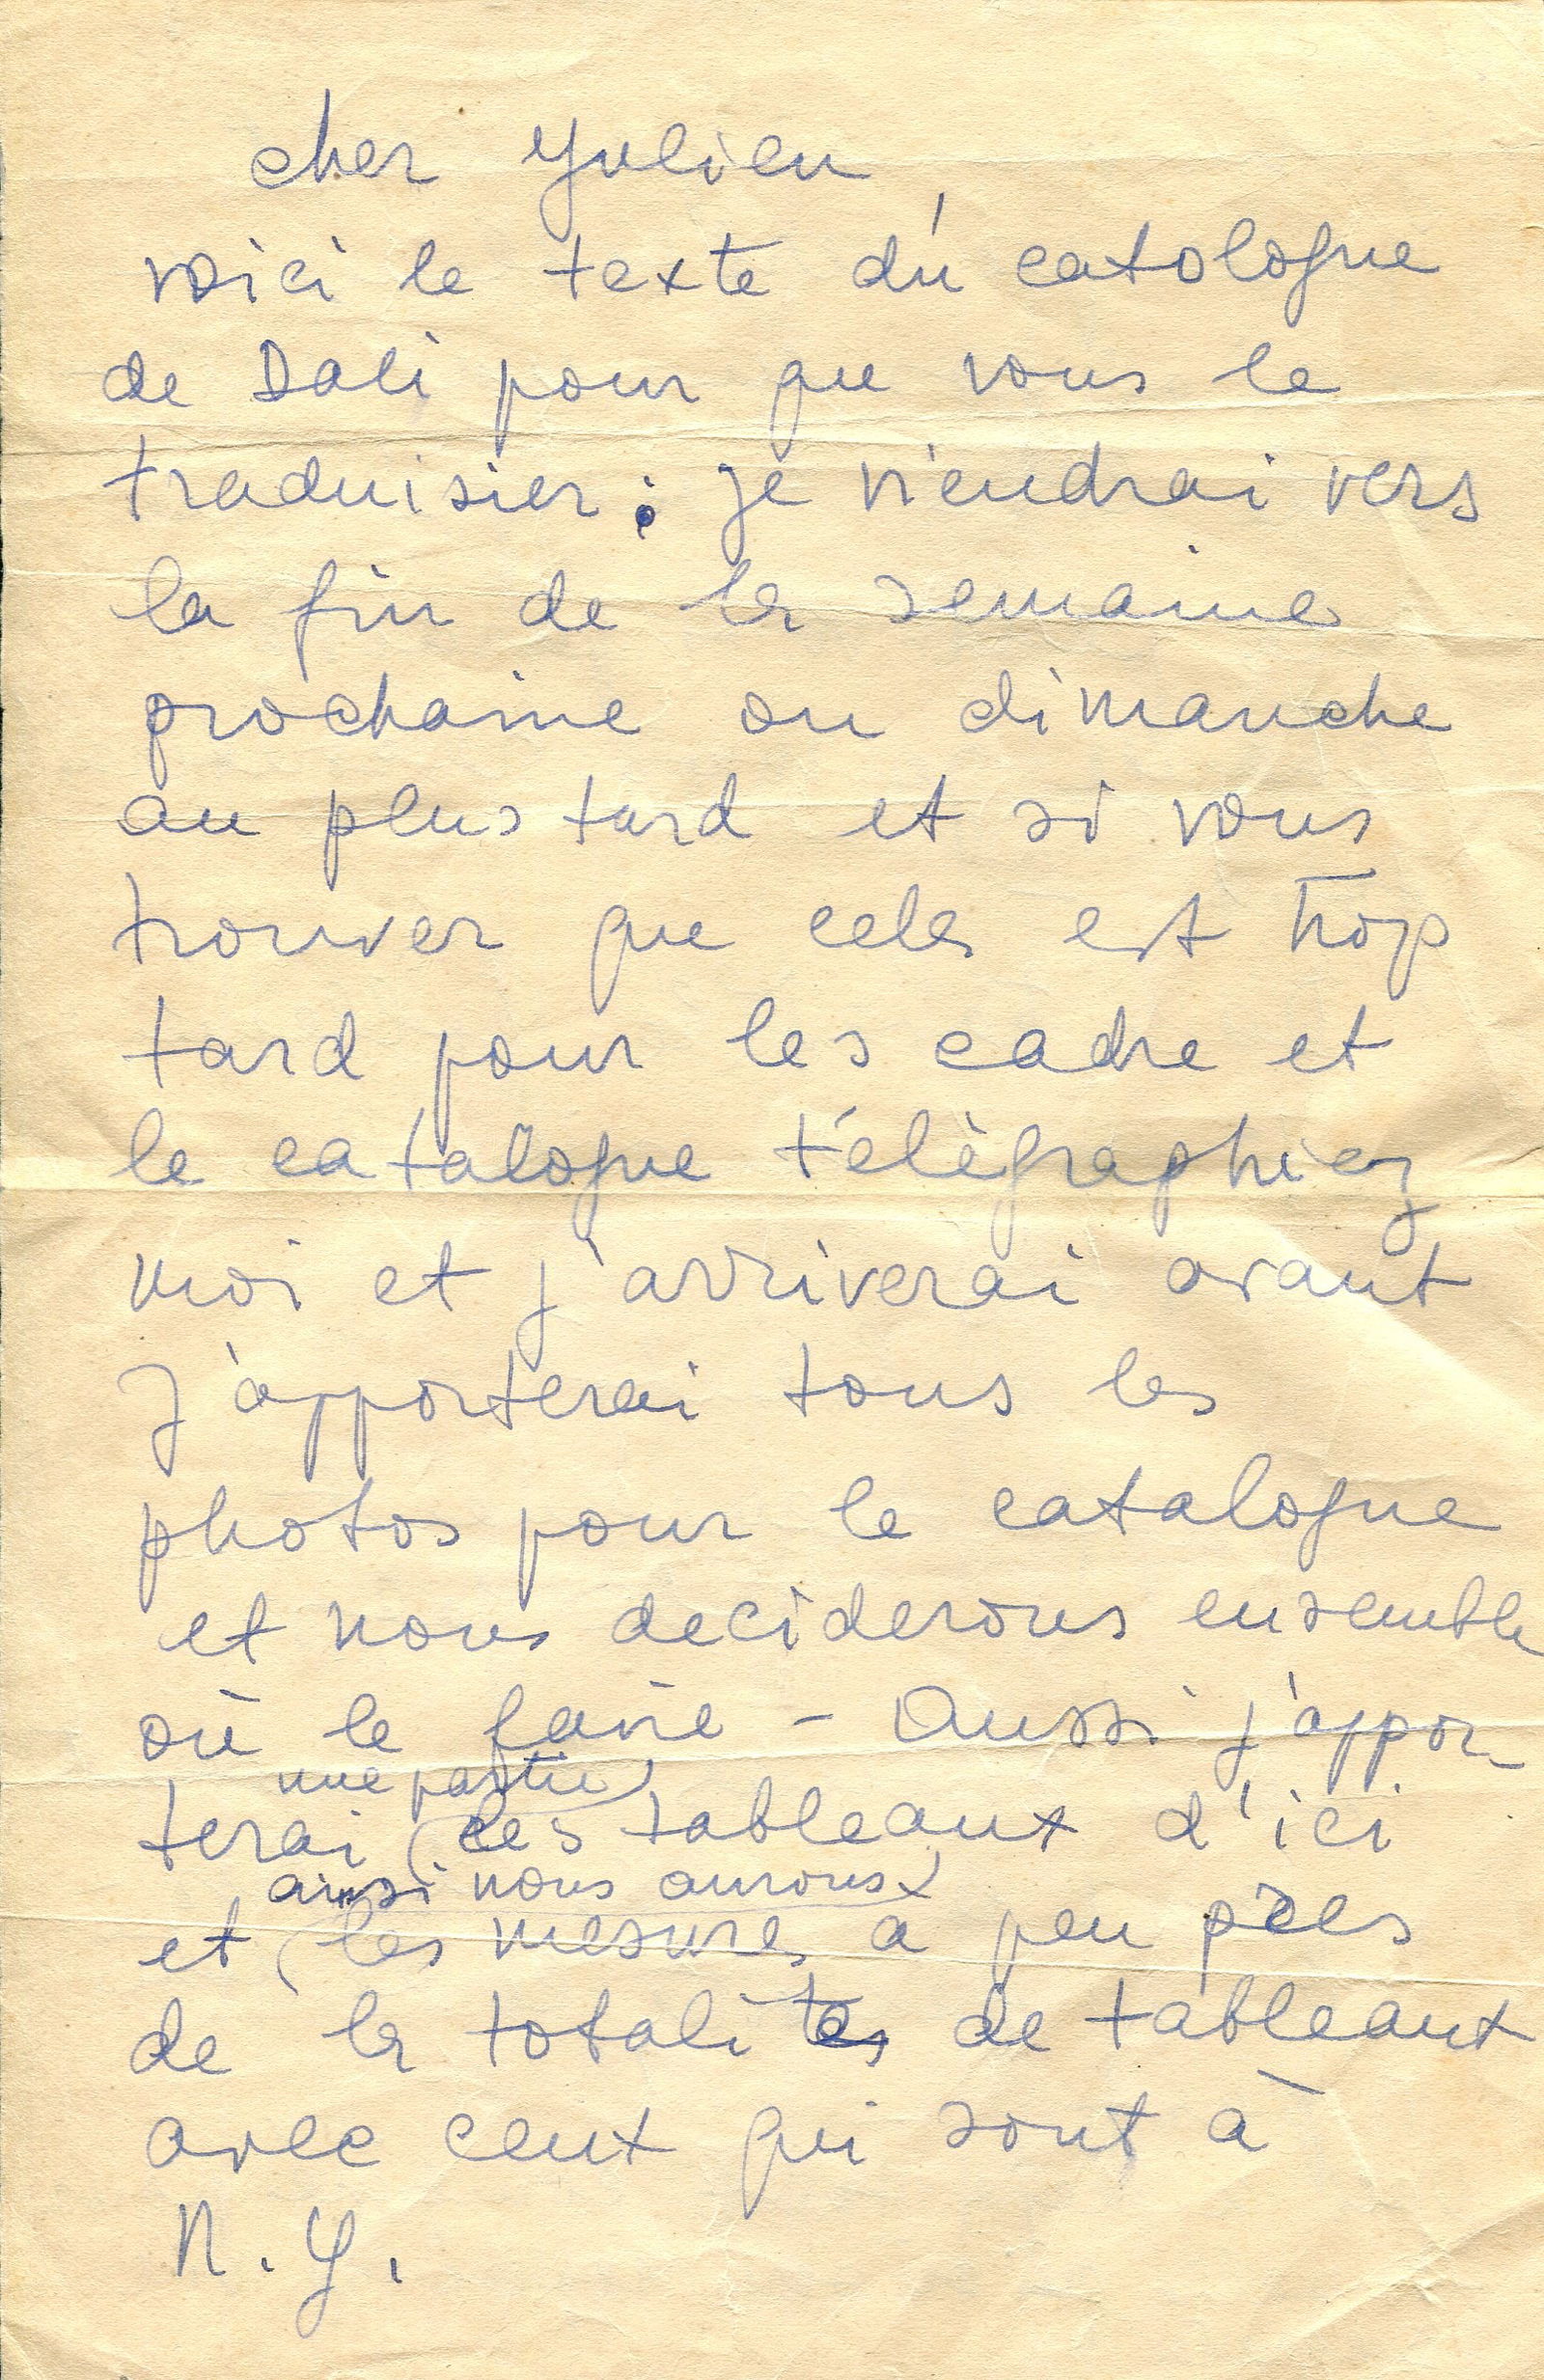 cher Yulien,
voici le texte du catologue
de Dali pour que vous le
traduisier; je viendrai vers
la fin de la semaine
prochaine ou dimanche
au plus tard et si vous
trouver que cela est trop
tard pour les cadre et
le catalogue télègraphiez
moi et j'arriverai avant
J'apporterai tous les
photos pour le catalogue
et nous deciderons ensemble
où le faire - Aussi j'appor-
une partie)
terai (des tableaux d'ici
ainsi nous aurons)
et (les mesures a peu près
de la totalites de tableaux
avec ceux qui sont à
N.Y.